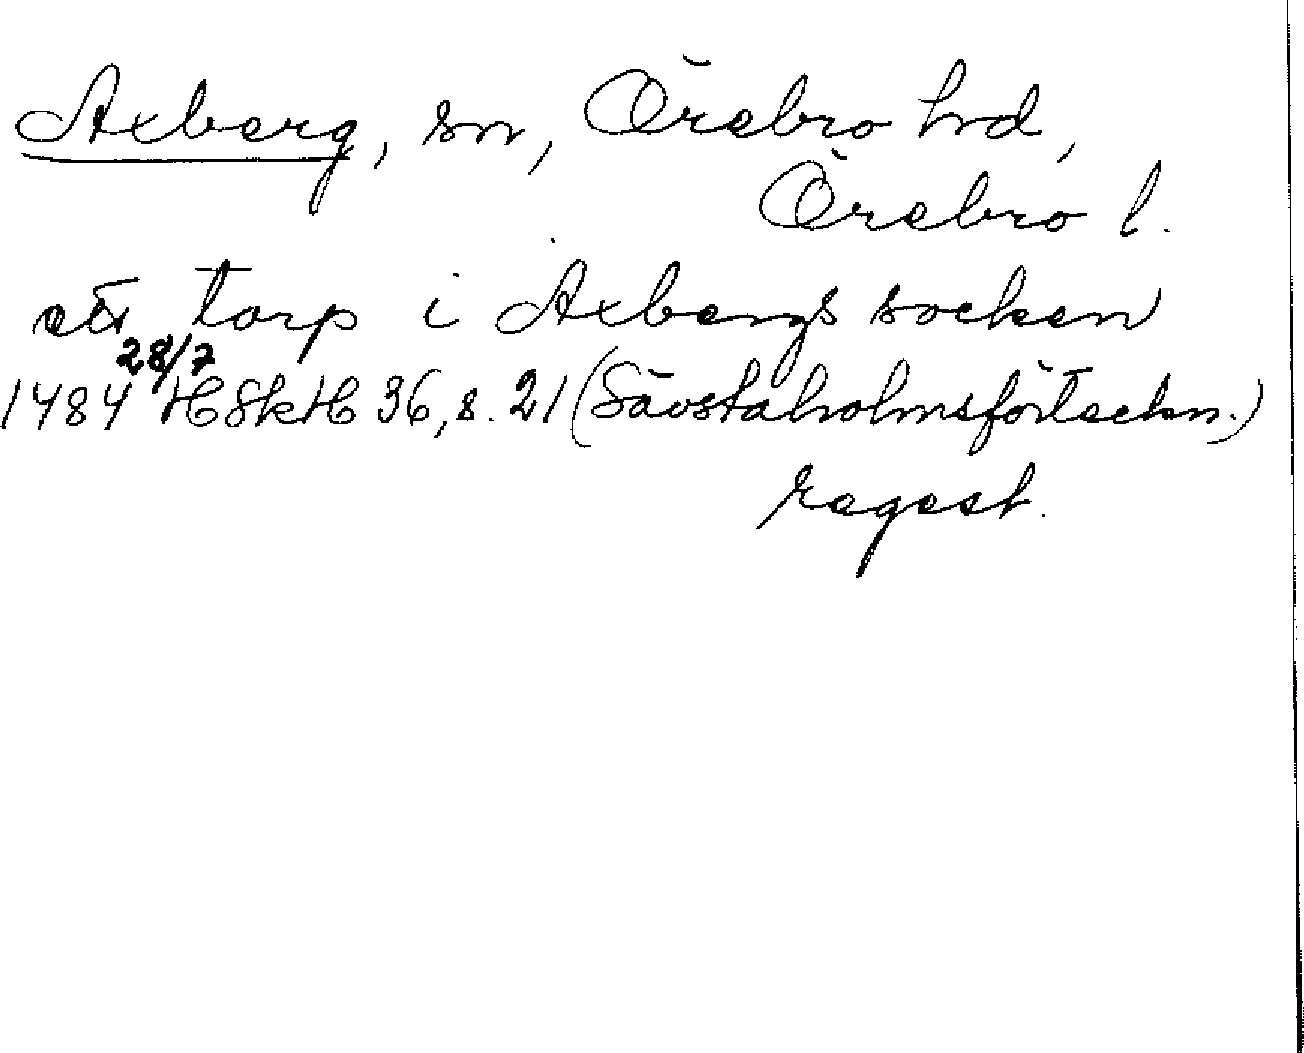 Axberg, sn, Örebro hd,
Örebro l.
ett torp i Axbergs socken
1484 28/7 HSkH 36, s. 21 (Sävstaholmsförteckn.)
regest.